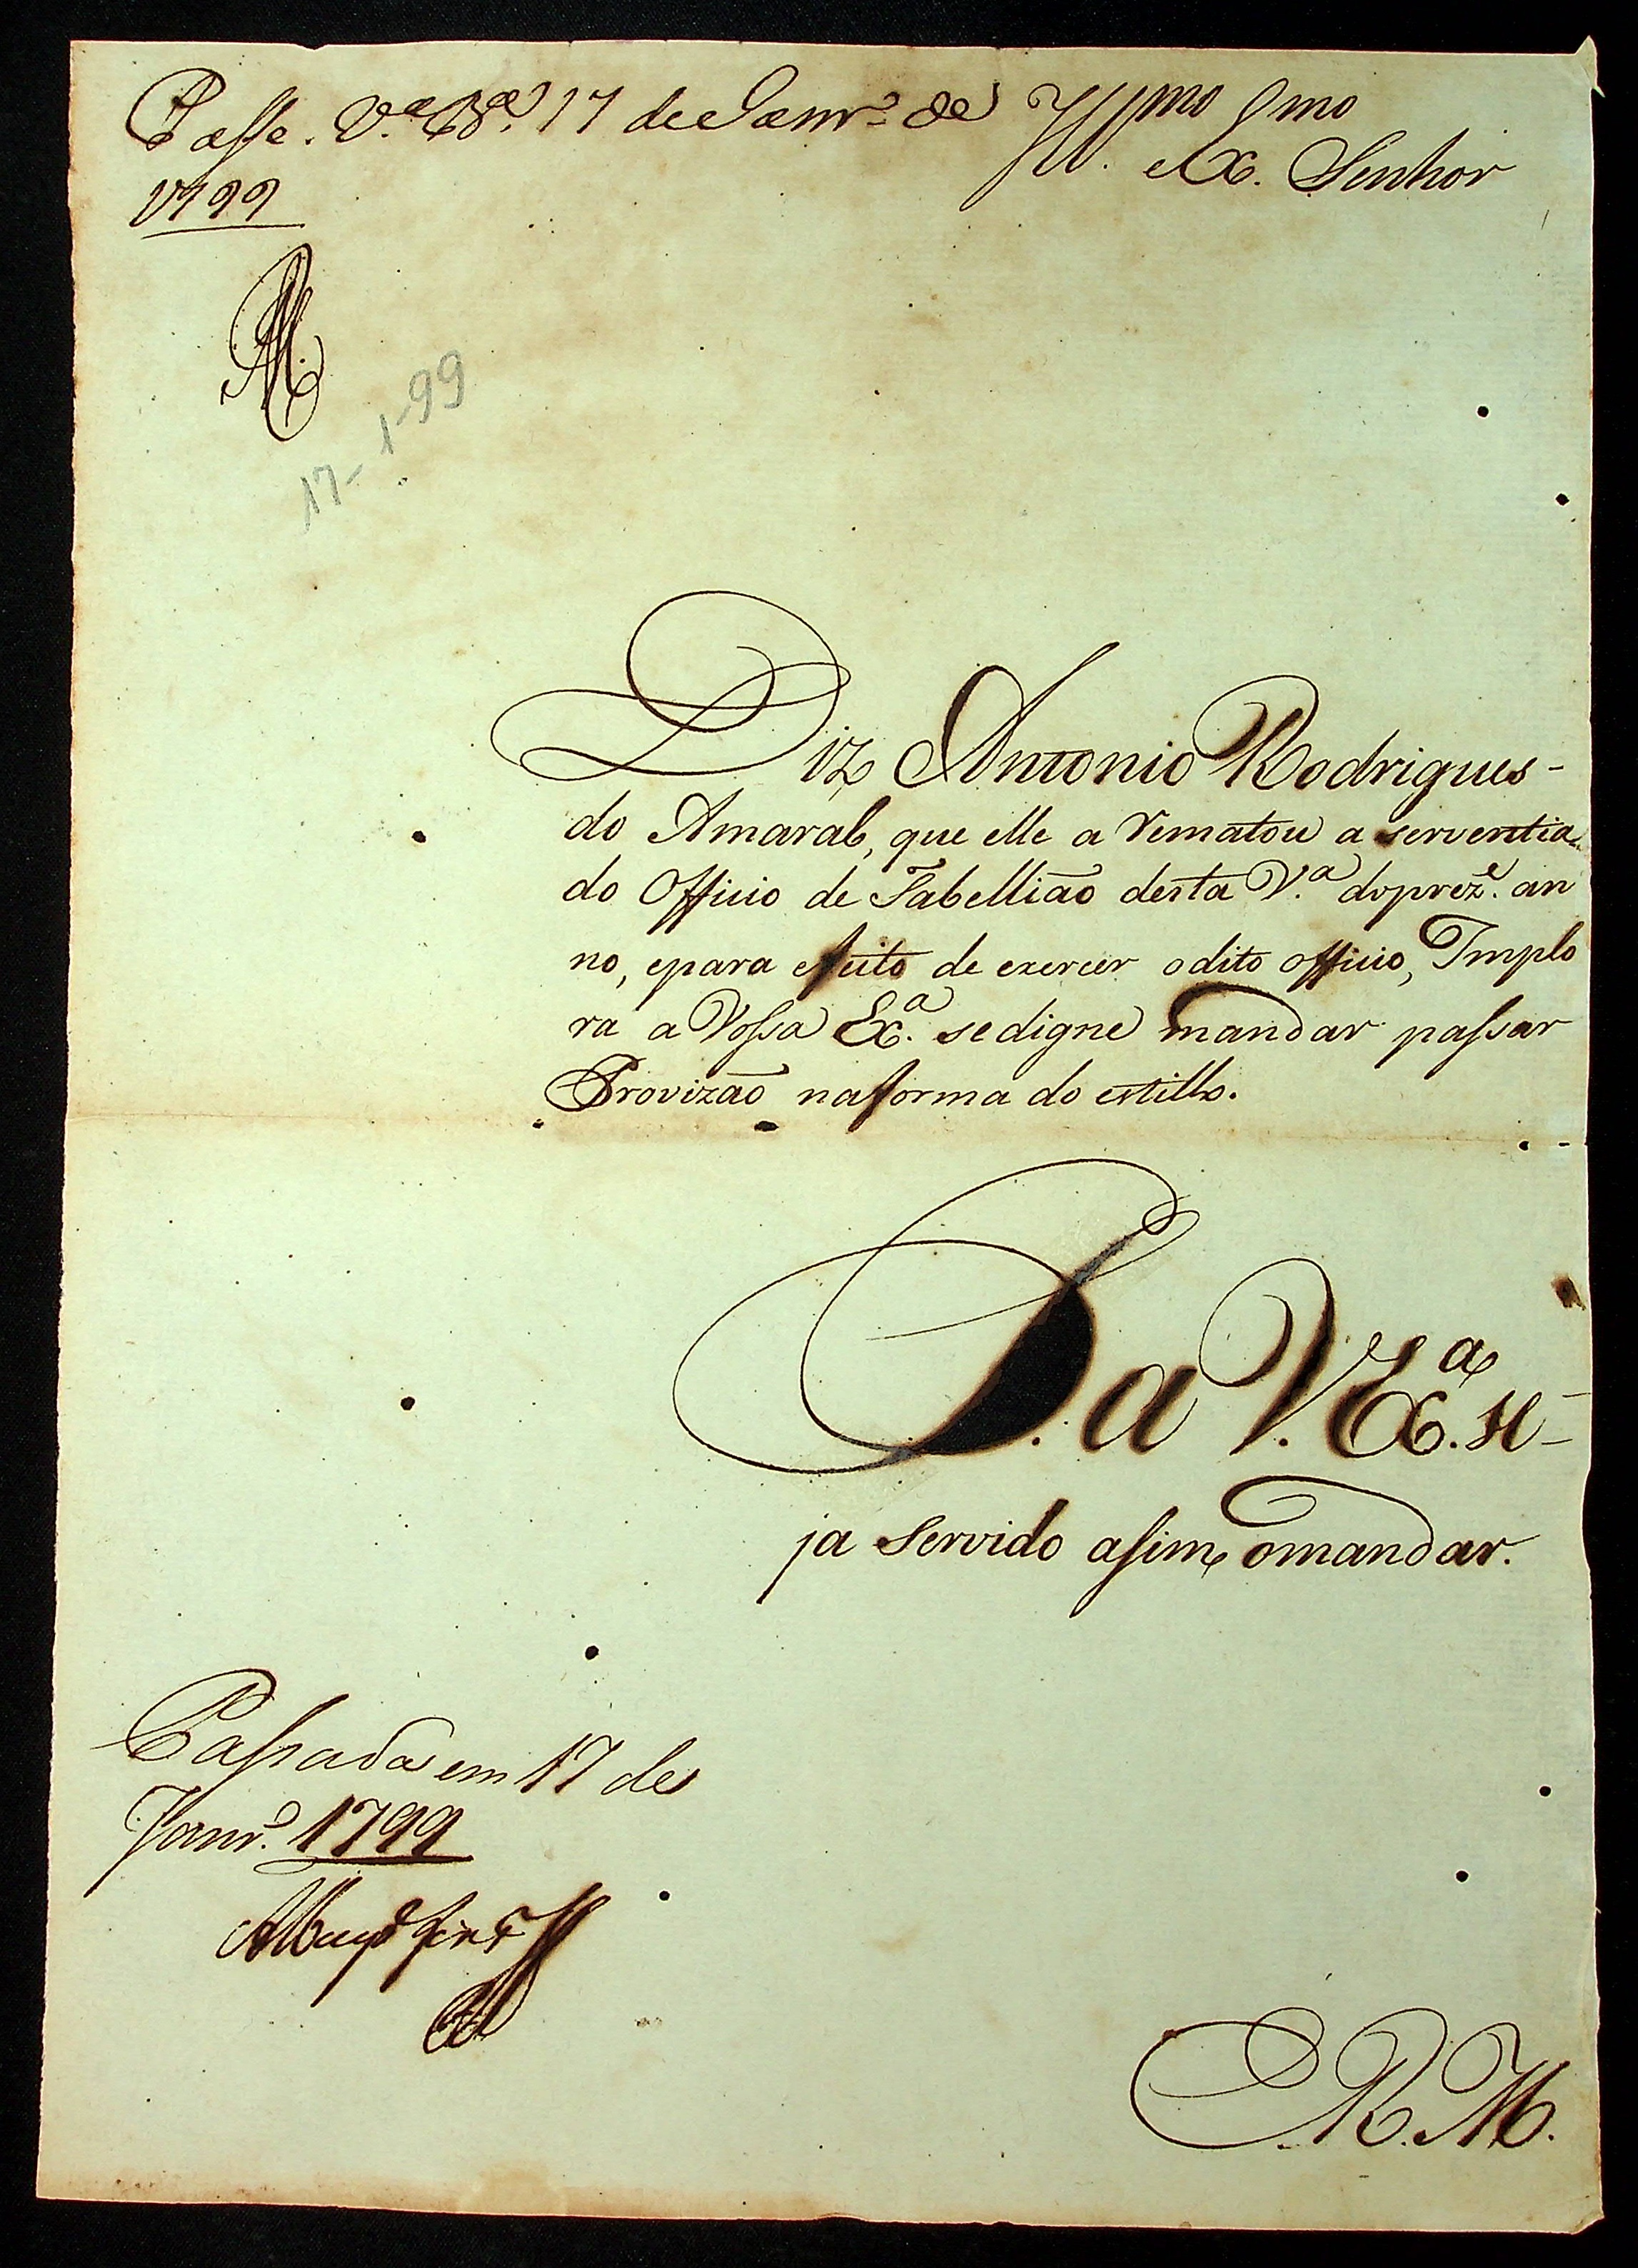 Passe. V.ª B.ª 17 de Janr.º de
1799
Ill.mo Ex.mo Senhor
17-1-99
Diz Antonio Rodrigues-
do Amaral, que elle a rematou a serventia
do Officio de Tabellião desta V.ª do prez.e an
no, epara efeito de exercer odito officio, Implo
ra a Vossa Ex.ª sedigne mandar passar
Provizão naforma do estillo.
P. a V. Ex.ª se-
ja Servido asim omandar.
Passada em 17 de
Janr.º 1799
E. R. M.